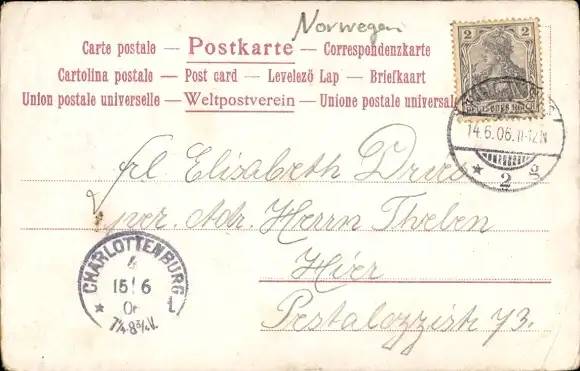 Norwegen
Carte postale — Postkarte — Correspondenzkarte
Cartolina postale — Post card — Levelező Lap — Briefkaart
Union postale universelle — Weltpostverein — Unione postale universal
2
14.6.06. 11-12N
* 2 g
Frl. Elisabeth Dries
per. Adr. Herrn Theben
Hier
Pestalozzistr 73.
CHARLOTTENBURG
4
15/6
0
7¼-8¾V.
* 1